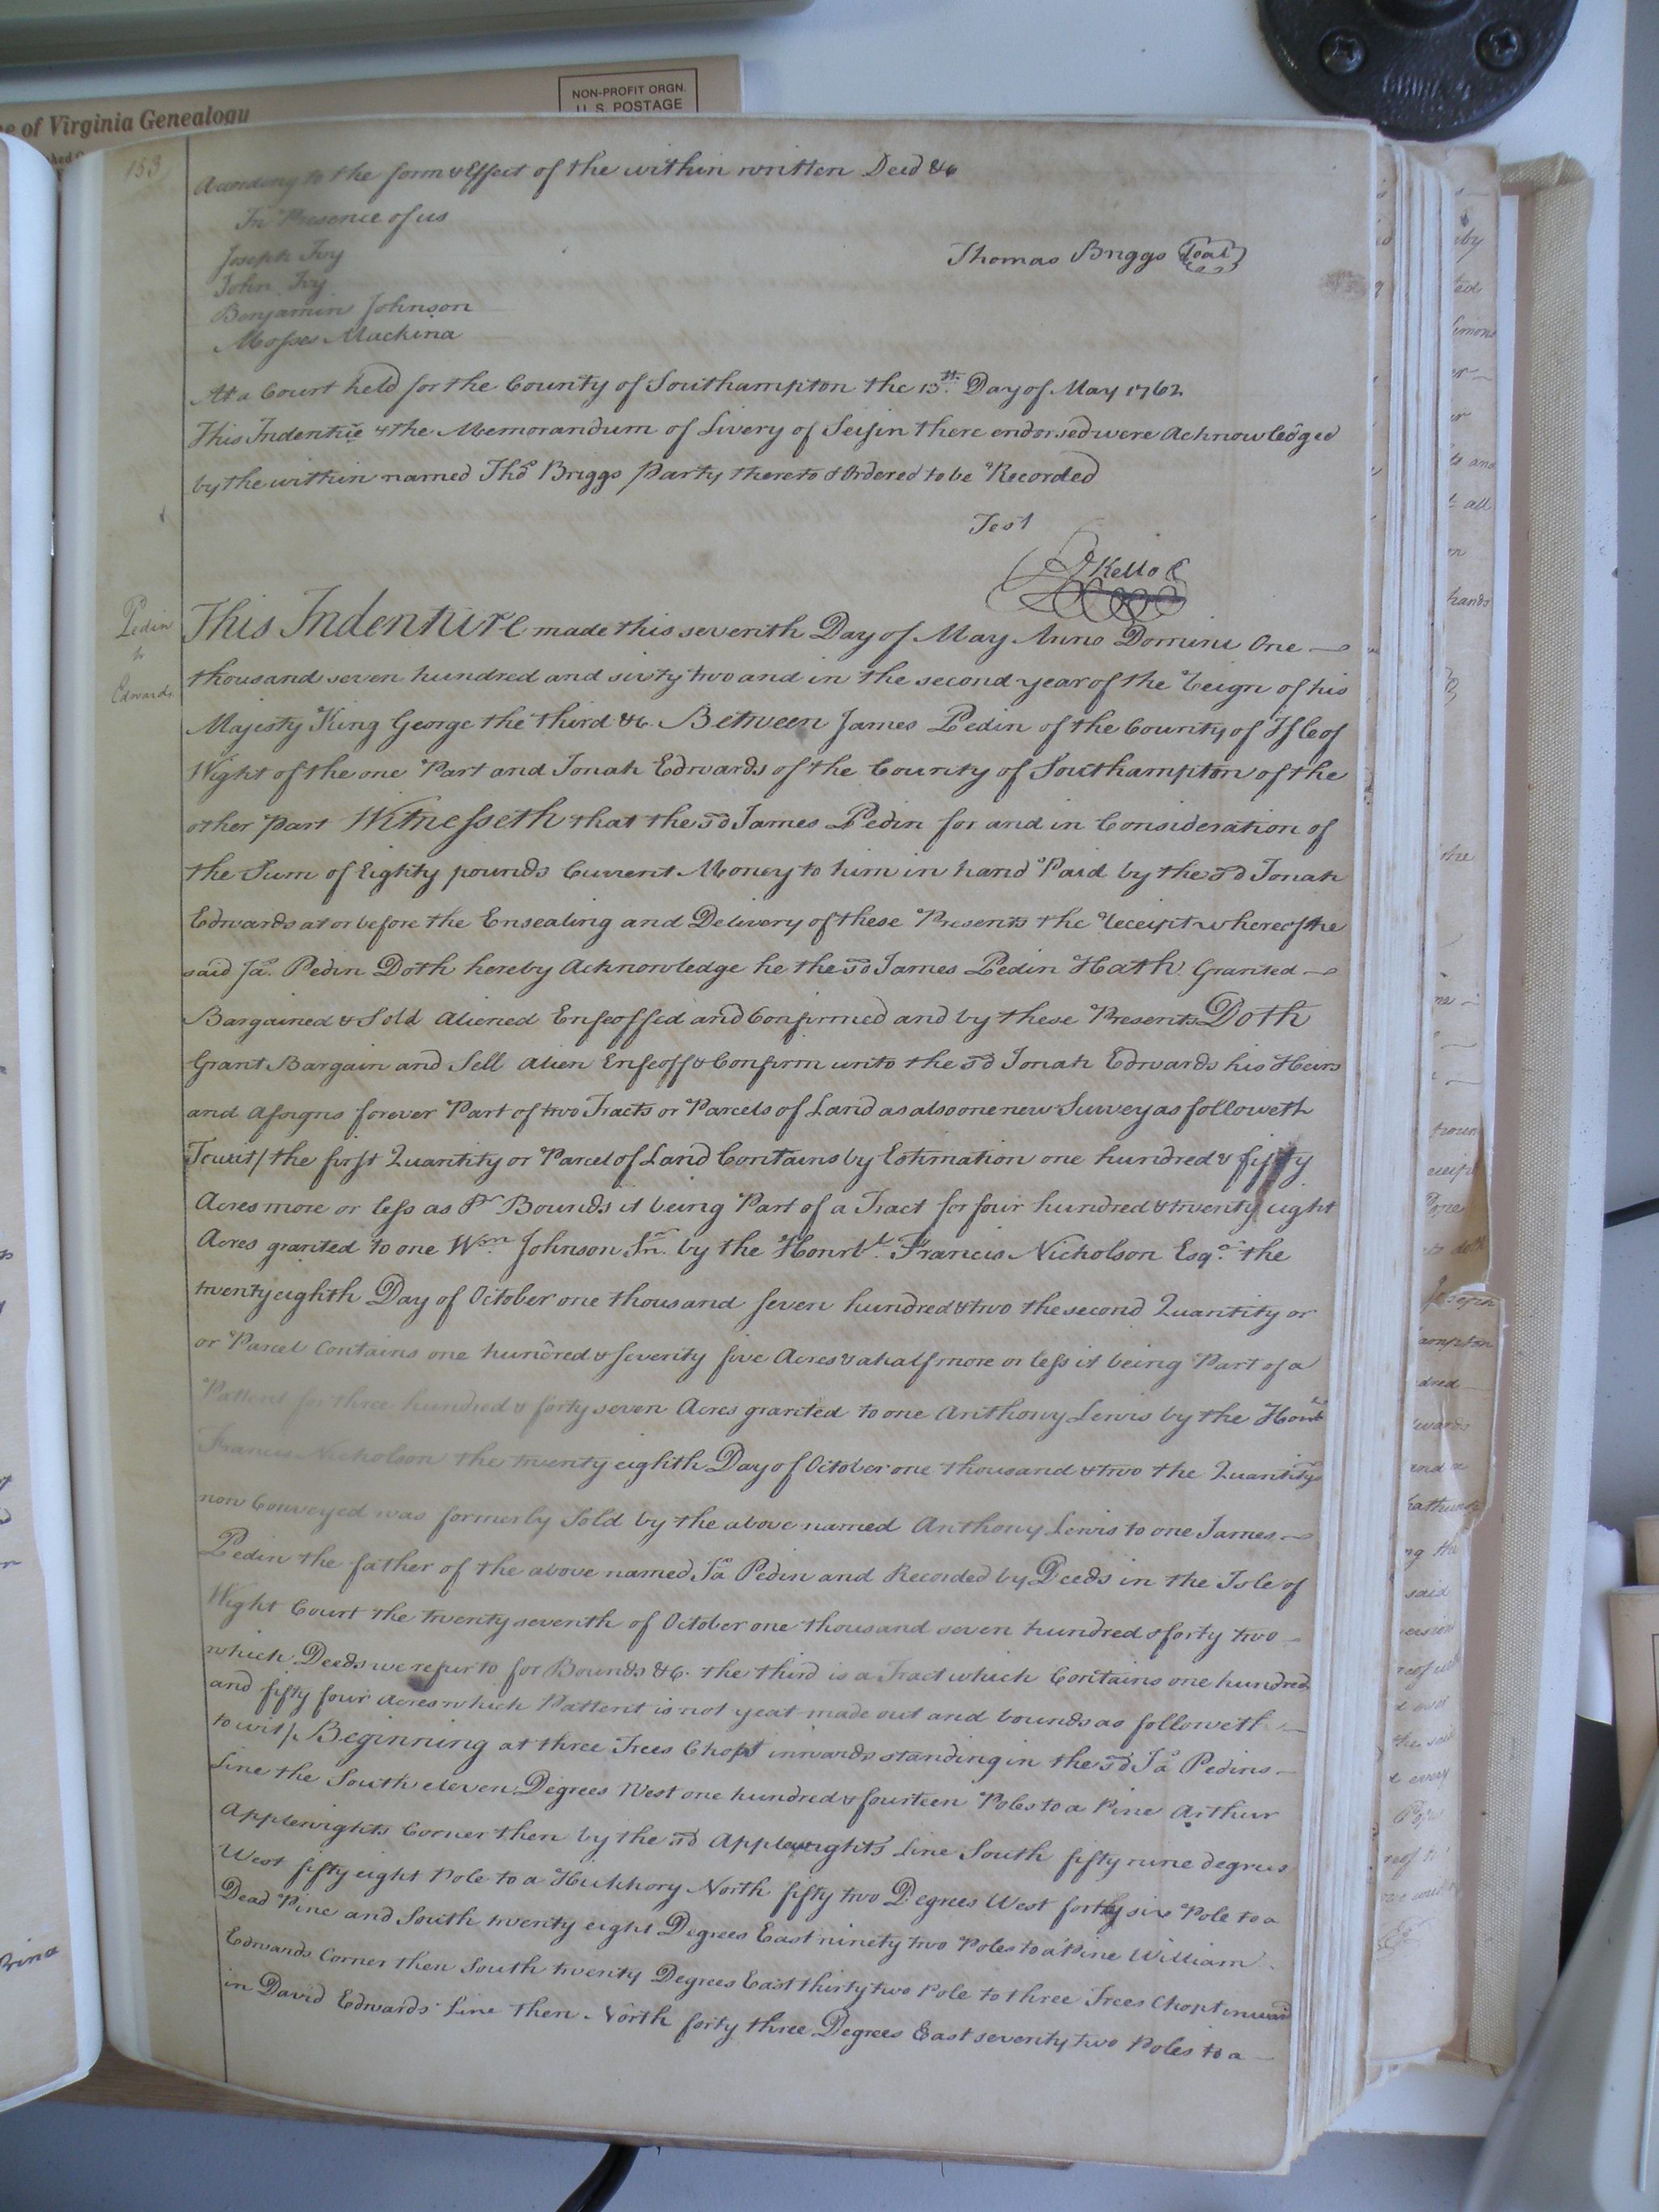 e of Virginia Genealogy
NON-PROFIT ORGN.
U. S. POSTAGE
153
According to the form & Effect of the within written Deed &c
In Presence of us
Thomas Briggs Seal
Joseph Ivy
John Ivy
Benjamin Johnson
Mosses Mackina
At a Court held for the County of Southampton the 13th. Day of May 1762
This Indentŭre & the Memorandum of Livery of Seisin there endorsed were Acknowledged
by the within named Tho.s Briggs Party thereto & Ordered to be Recorded
Test
R Kello C
Pedin
to
Edwards
This Indenture made this seventh Day of May Anno Domini One
thousand seven hundred and sixty two and in the second year of the Reign of his
Majesty King George the third &c. Between James Pedin of the County of Isle of
Wight of the one Part and Jonah Edwards of the County of Southampton of the
other Part Witnesseth that the sd James Pedin for and in Consideration of
the Sum of Eighty pounds Current Money to him in hand Paid by the sd Jonah
Edwards at or before the Ensealing and Delivery of these Presents the Receipt whereof the
said Ja.s Pedin Doth hereby Acknowledge he the sd James Pedin Hath Granted
Bargained & Sold Aliened Enfeoffed and Confirmed and by these Presents Doth
Grant Bargain and Sell Alien Enfeoff & Confirm unto the sd Jonah Edwards his Heirs
and Assigns forever Part of two Tracts or Parcels of Land as also one new Survey as followeth
Towit/ the first Quantity or Parcel of Land Contains by Estimation one hundred & fifty
Acres more or less as Pr Bounds it being Part of a Tract for four hundred & twenty eight
Acres granted to one Wm. Johnson Sn. by the Honrbl. Francis Nicholson Esqr. the
twenty eighth Day of October one thousand seven hundred & two the second Quantity or
or Parcel Contains one hundred & seventy five Acres & a half more or less it being Part of a
Pattent for three hundred & forty seven Acres granted to one Anthony Lewis by the Honbl
Francis Nicholson the twenty eighth Day of October one thousand & two the Quantitys
now Conveyed was formerly Sold by the above named Anthony Lewis to one James
Pedin the father of the above named Ja.s Pedin and Recorded by Deeds in the Isle of
Wight Court the twenty seventh of October one thousand seven hundred & forty two
which Deeds we refur to for Bounds &c. the third is a Tract which Contains one hundred
and fifty four Acres which Pattent is not yeat made out and bounds as followeth
to wit/ Beginning at three Trees Chopt inwards standing in the sd Ja.s Pedins
Line the South eleven Degrees West one hundred & fourteen Poles to a Pine Arthur
Applewights Corner then by the sd Applewights Line South fifty nine degrees
West fifty eight Pole to a Hickhory North fifty two Degrees West forty six Pole to a
Dead Pine and South twenty eight Degrees East ninety two Poles to a Pine William
Edwards Corner then South twenty Degrees East thirty two Pole to three Trees Chopt inward
in David Edwards Line then North forty three Degrees East seventy two Poles to a